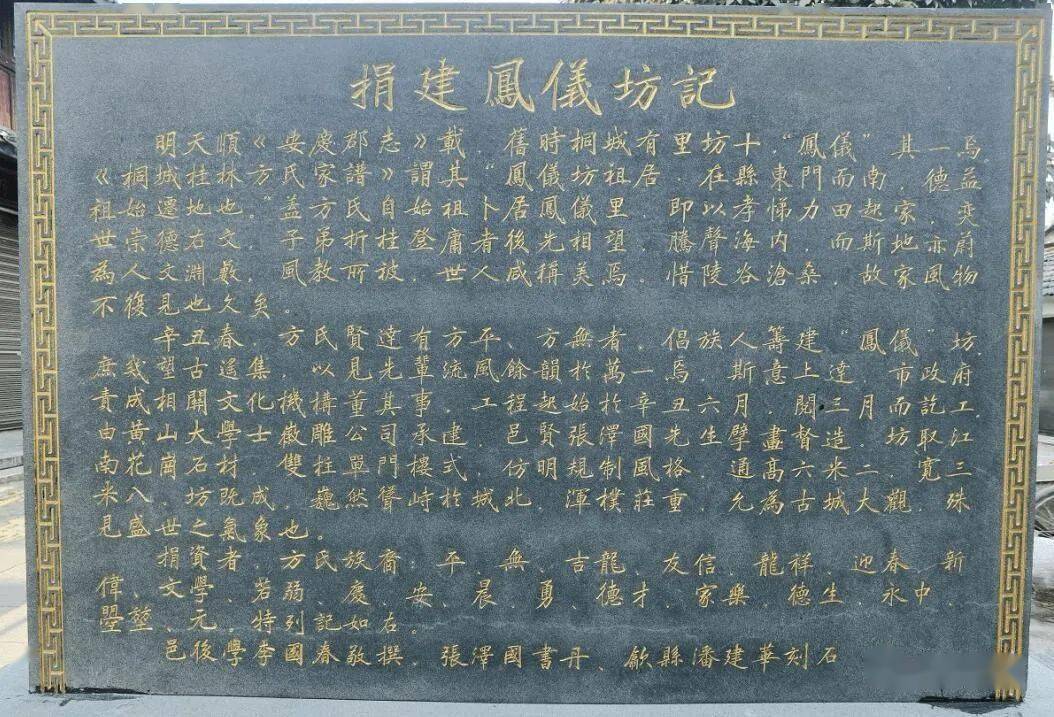 捐建鳳儀坊記
明天順《安慶郡志》載，舊時桐城有里坊十，“鳳儀”其一焉。
《桐城桂林方氏家譜》謂其“鳳儀坊祖居，在縣東門而南，德益
祖始遷地也。”蓋方氏自始祖卜居鳳儀里，即以孝悌力田起家，奕
世崇德右文，子弟折桂登庸者後先相望，騰聲海内，而斯地亦蔚
為人文淵藪，風教所被，世人咸稱美焉。惜陵谷滄桑，故家風物
不復見也久矣。
辛丑春，方氏賢達有方平、方無者，倡族人籌建“鳳儀”坊，
庶幾望古遙集，以見先輩流風餘韻於萬一焉。斯意上達，市政府
責成相開文化機構董其事，工程起始於辛丑六月，閱三月而訖工。
由黄山大學士徽雕公司承建，邑賢張澤國先生擘盡督造，坊取江
南花崗石材，雙柱單門樓式，仿明規制，風格通高六米二，寬三
米八，石坊既成，巍然聳峙於城北，渾樸莊重，允為古城大觀，殊
見盛世之氣象也。
捐資者，方氏族裔：平、無、吉龍、友信、龍祥、迎春、新
偉、文學、若弱、慶安、晨、勇、德才、家樂、德生、永中、
曌、堃、元，特列記如右。
邑後學李國春敬撰，張澤國書丹、歙縣潘建華刻石